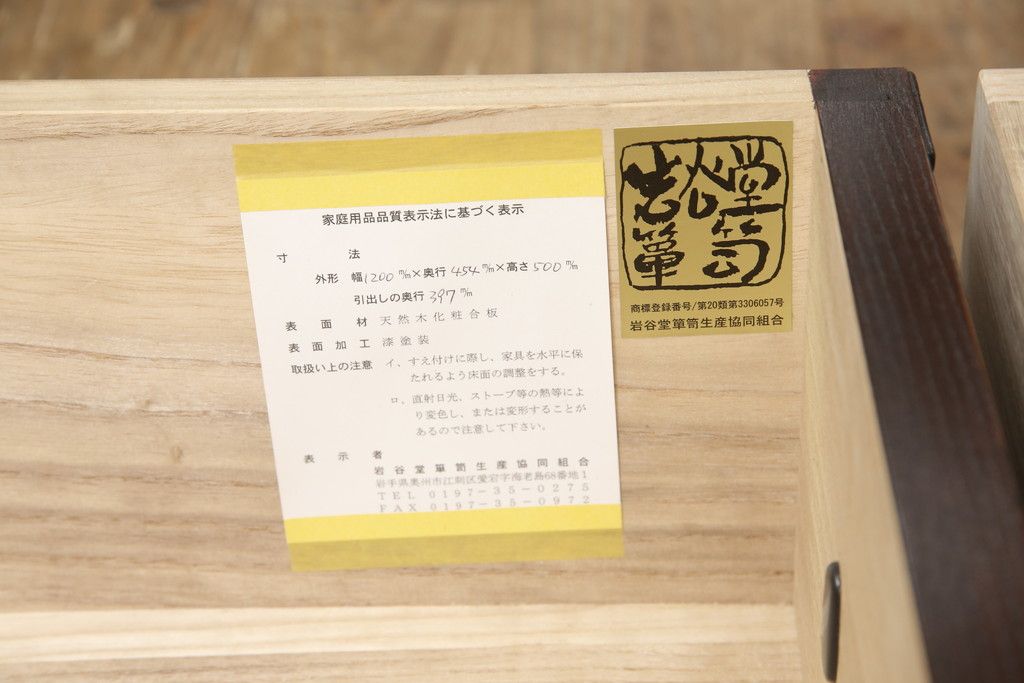 家庭用品品質表示法に基づく表示
寸法
外形 幅1200m/m×奥行454m/m×高さ500m/m
引出しの奥行397m/m
表面材 天然木化粧合板
表面加工 漆塗装
取扱い上の注意 イ、すえ付けに際し、家具を水平に保
たれるよう床面の調整をする。
ロ、直射日光、ストーブ等の熱等によ
り変色し、または変形することが
あるので注意して下さい。
表示者
岩谷堂簞笥生産協同組合
岩手県奥州市江刺区愛宕字海老島68番地1
TEL 0197-35-0275
FAX 0197-35-0972
岩谷堂
簞笥
商標登録番号/第20類第3306057号
岩谷堂簞笥生産協同組合